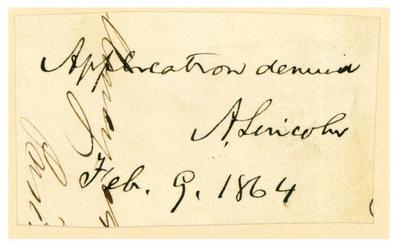 Application denied
A. Lincoln
Feb. 9. 1864